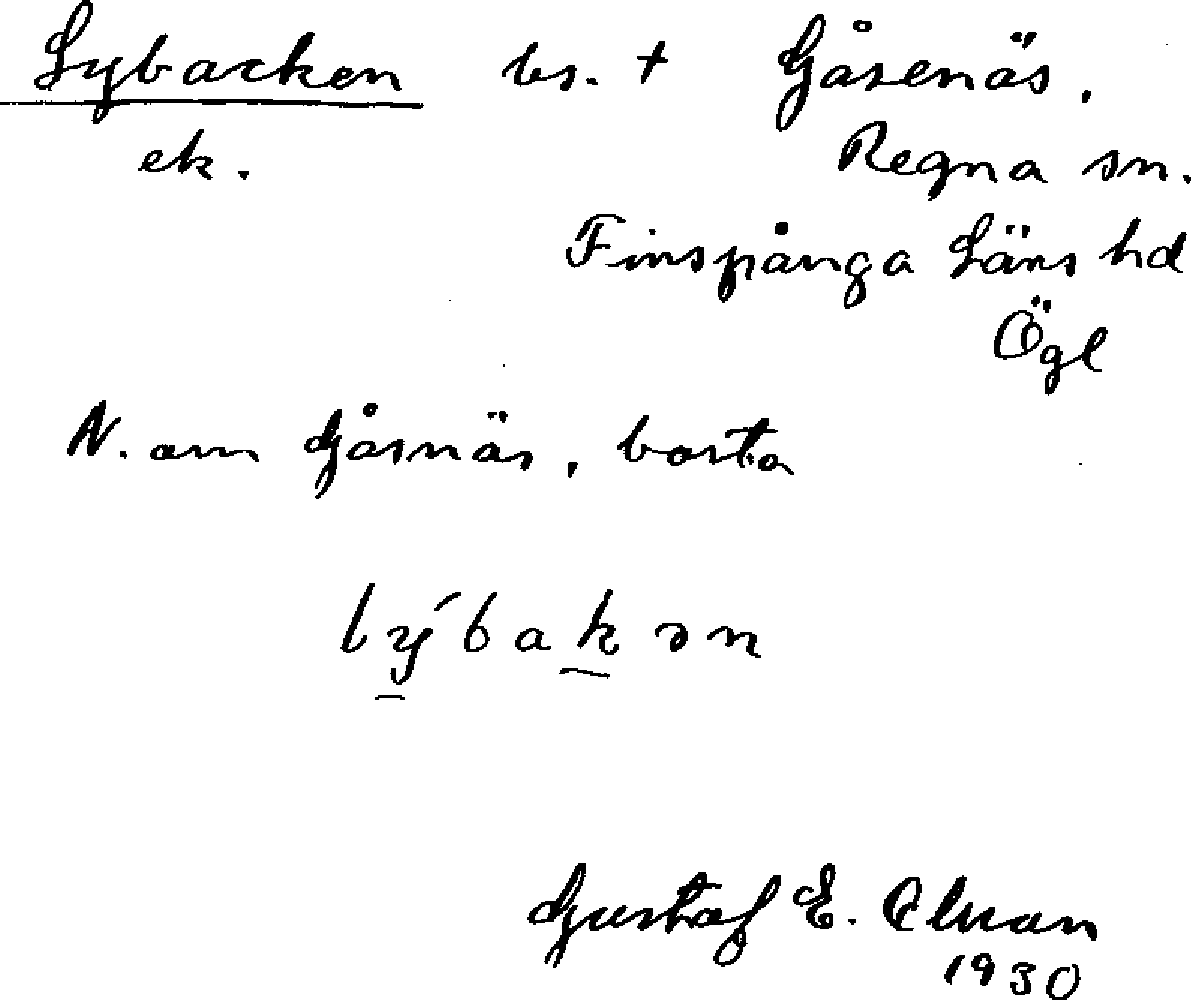 Lybacken bs. + Gåsenäs.
ek. Regna sn.
Finspånga Läns hd
Ögl
N. om Gåsnäs, borta
lýbakən
Gustaf E.
1930